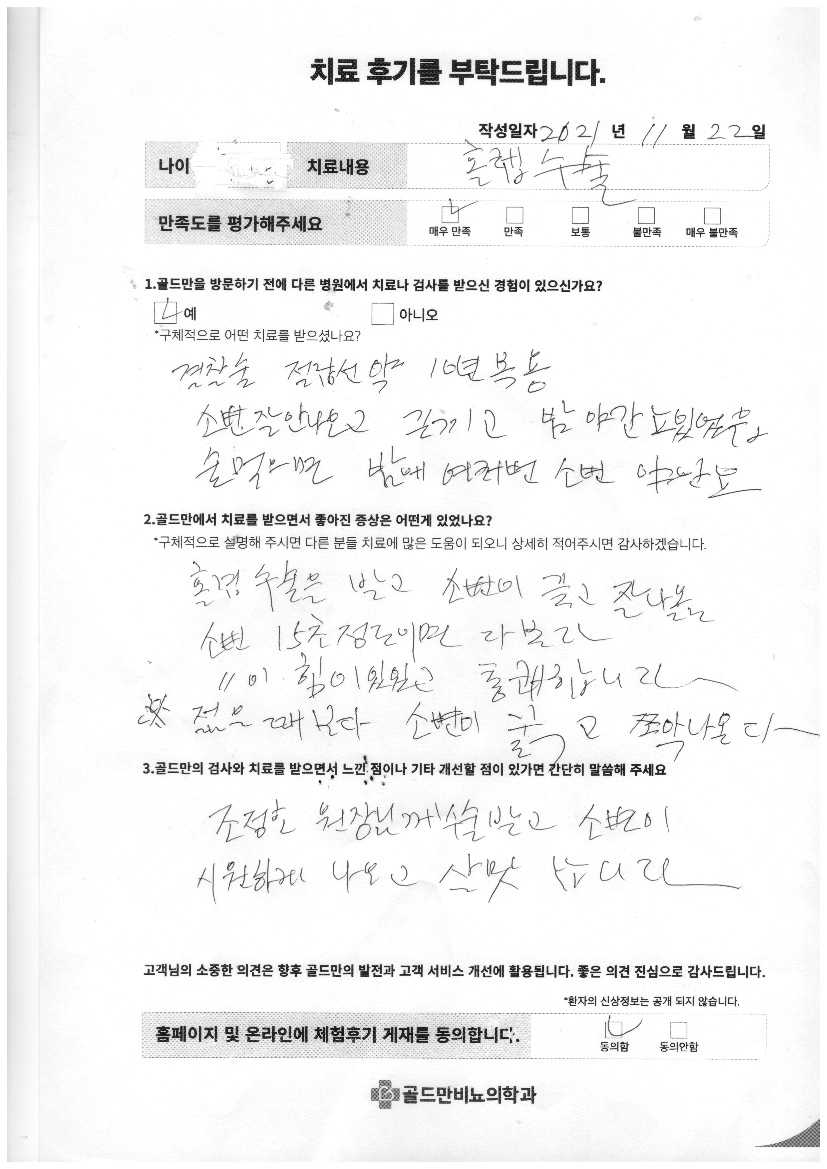 치료 후기를 부탁드립니다.
작성일자 2021 년 11 월 22 일
나이 치료내용 홀렙 수술
만족도를 평가해주세요
매우 만족 만족 보통 불만족 매우 불만족
1.골드만을 방문하기 전에 다른 병원에서 치료나 검사를 받으신 경험이 있으신가요?
예 아니오
*구체적으로 어떤 치료를 받으셨나요?
전립선 약 10년 복용
소변 잘 안나오고 끈기고 밤 야간뇨
술 먹으면 밤에 여러번 소변 야간뇨
2.골드만에서 치료를 받으면서 좋아진 증상은 어떤게 있었나요?
*구체적으로 설명해 주시면 다른 분들 치료에 많은 도움이 되오니 상세히 적어주시면 감사하겠습니다.
수술을 받고 소변이 굵고 잘나옴
소변 15초 정도이면 다 본다
〃 이 힘이 있고 통쾌합니다
※ 젊을 때 보다 소변이 굵고 쫘악 나온다
3.골드만의 검사와 치료를 받으면서 느낀 점이나 기타 개선할 점이 있가면 간단히 말씀해 주세요
조정호 원장님께 수술받고 소변이
시원하게 나오고 살맛 납니다
고객님의 소중한 의견은 향후 골드만의 발전과 고객 서비스 개선에 활용됩니다. 좋은 의견 진심으로 감사드립니다.
*환자의 신상정보는 공개 되지 않습니다.
홈페이지 및 온라인에 체험후기 게재를 동의합니다.
동의함 동의안함
골드만비뇨의학과